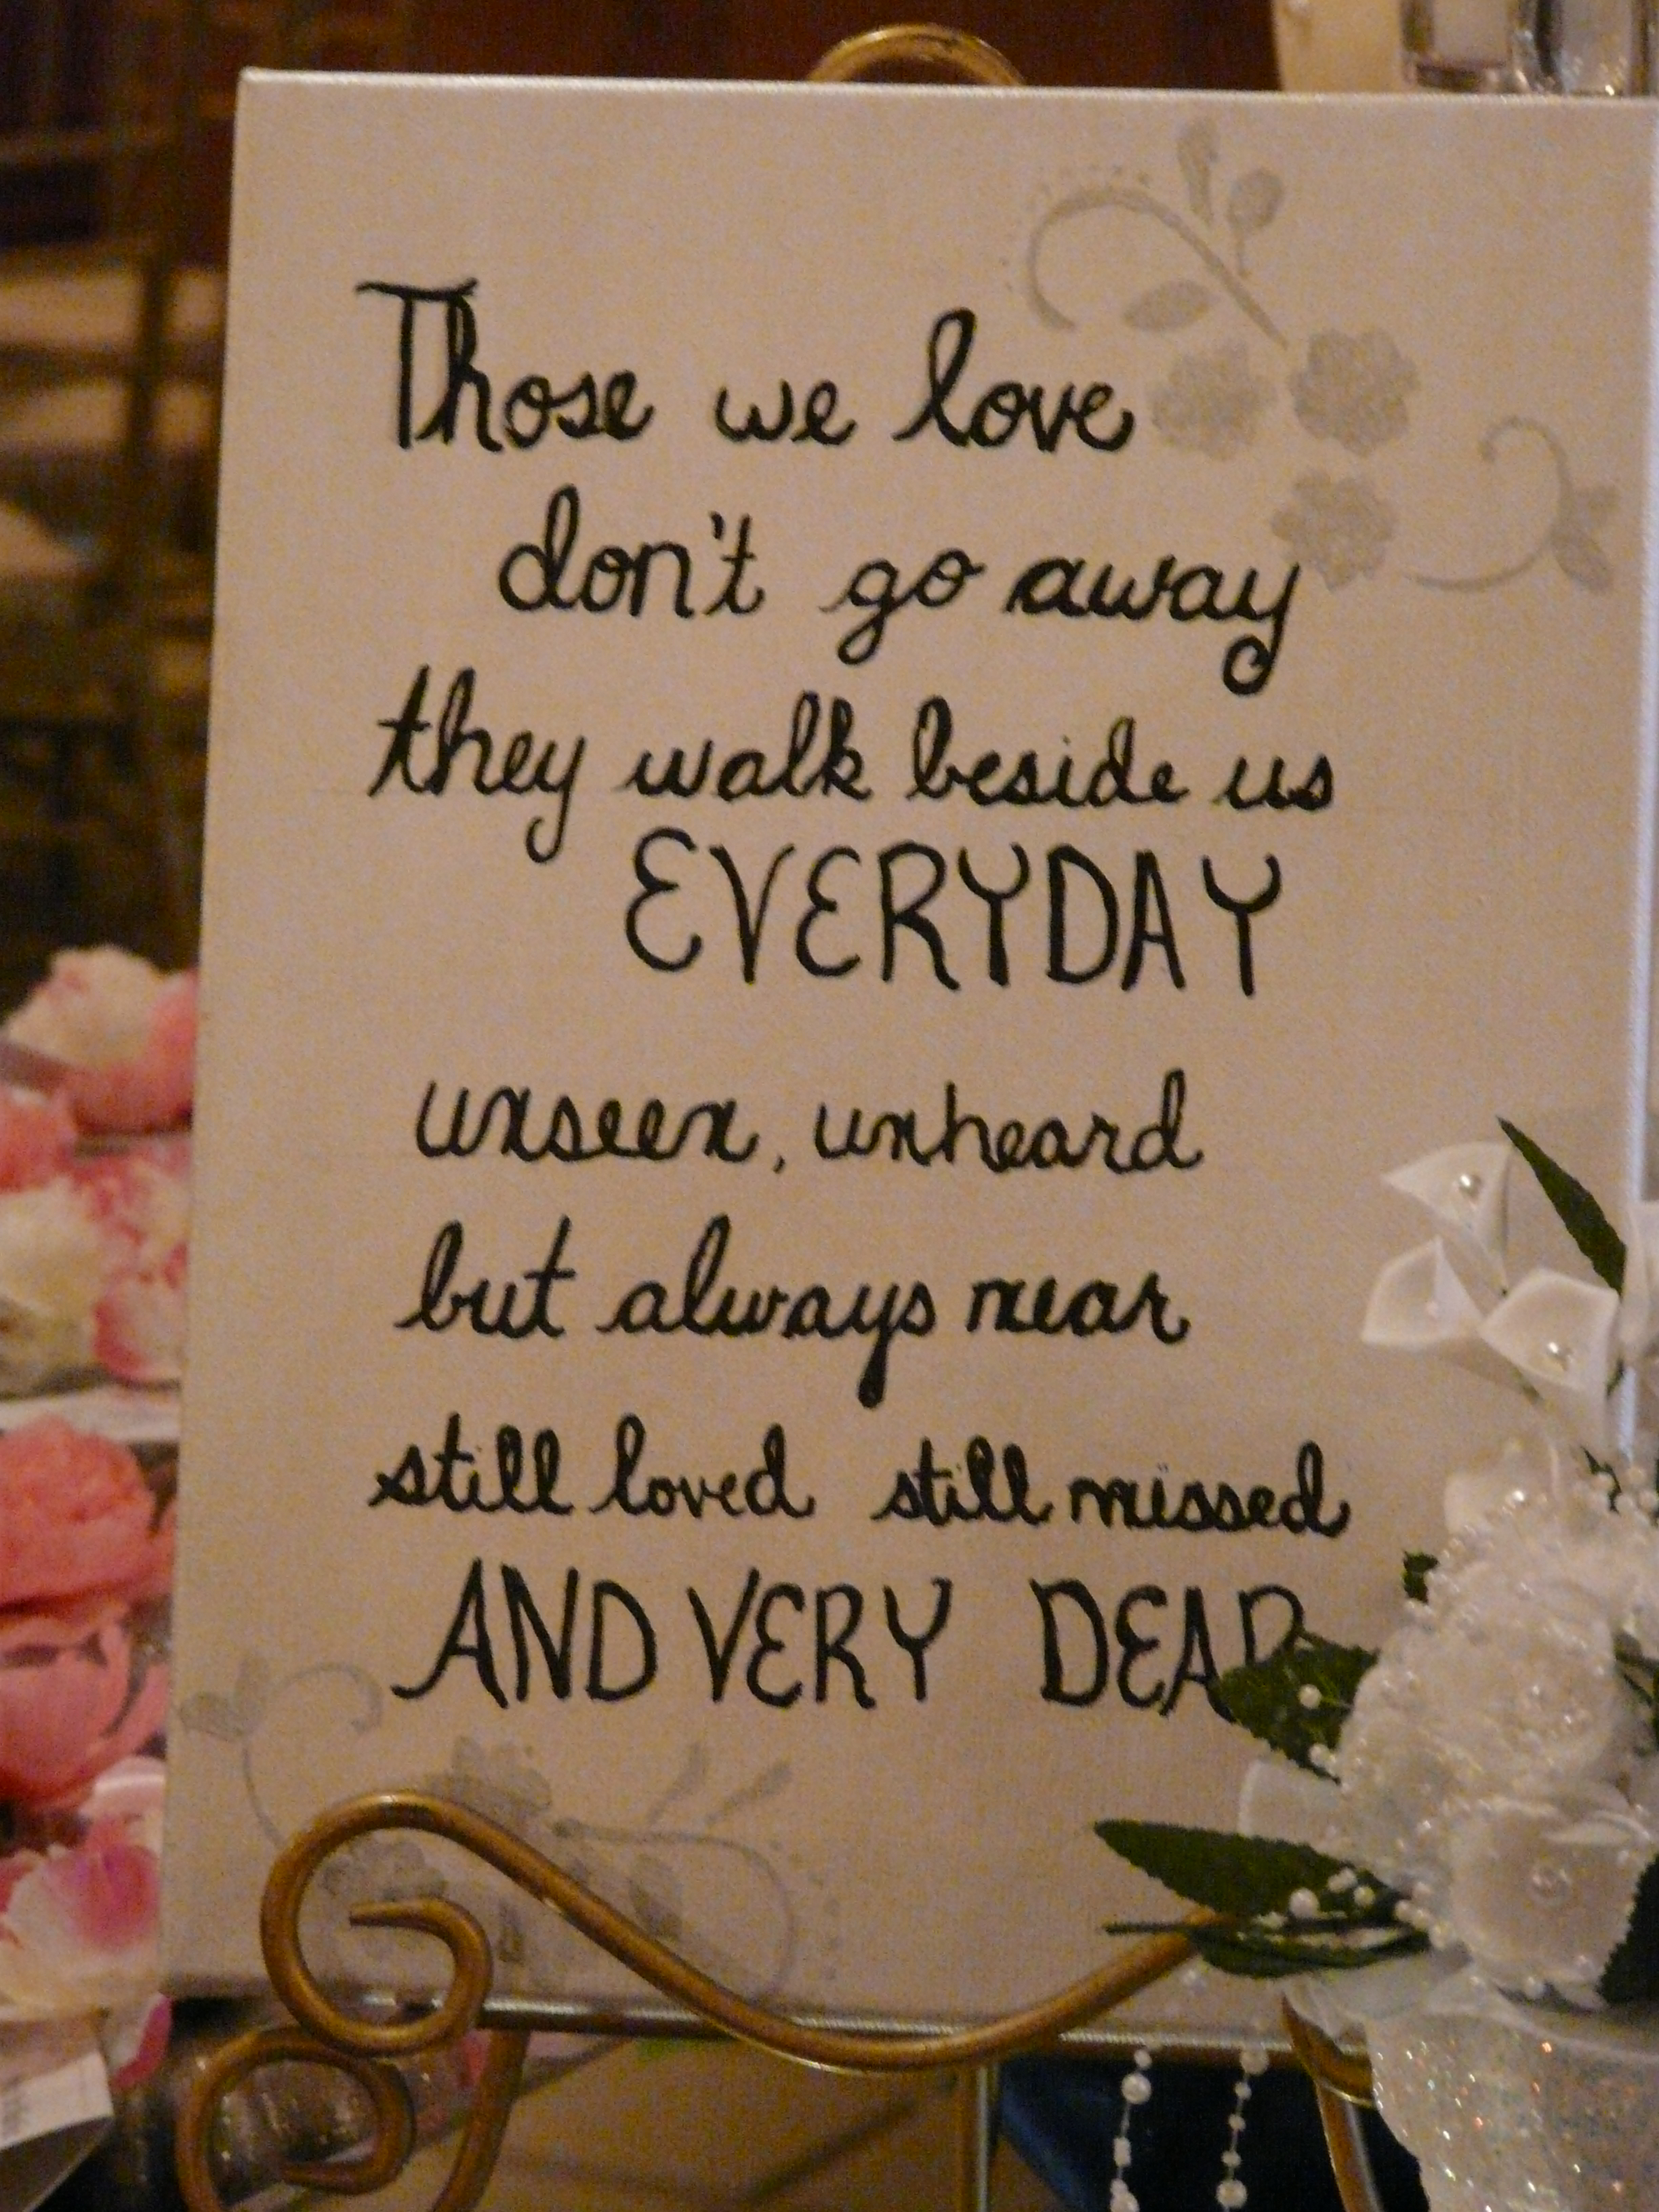 Those we love
don't go away
they walk beside us
EVERYDAY
unseen, unheard
but always near
still loved still missed
AND VERY DEAR